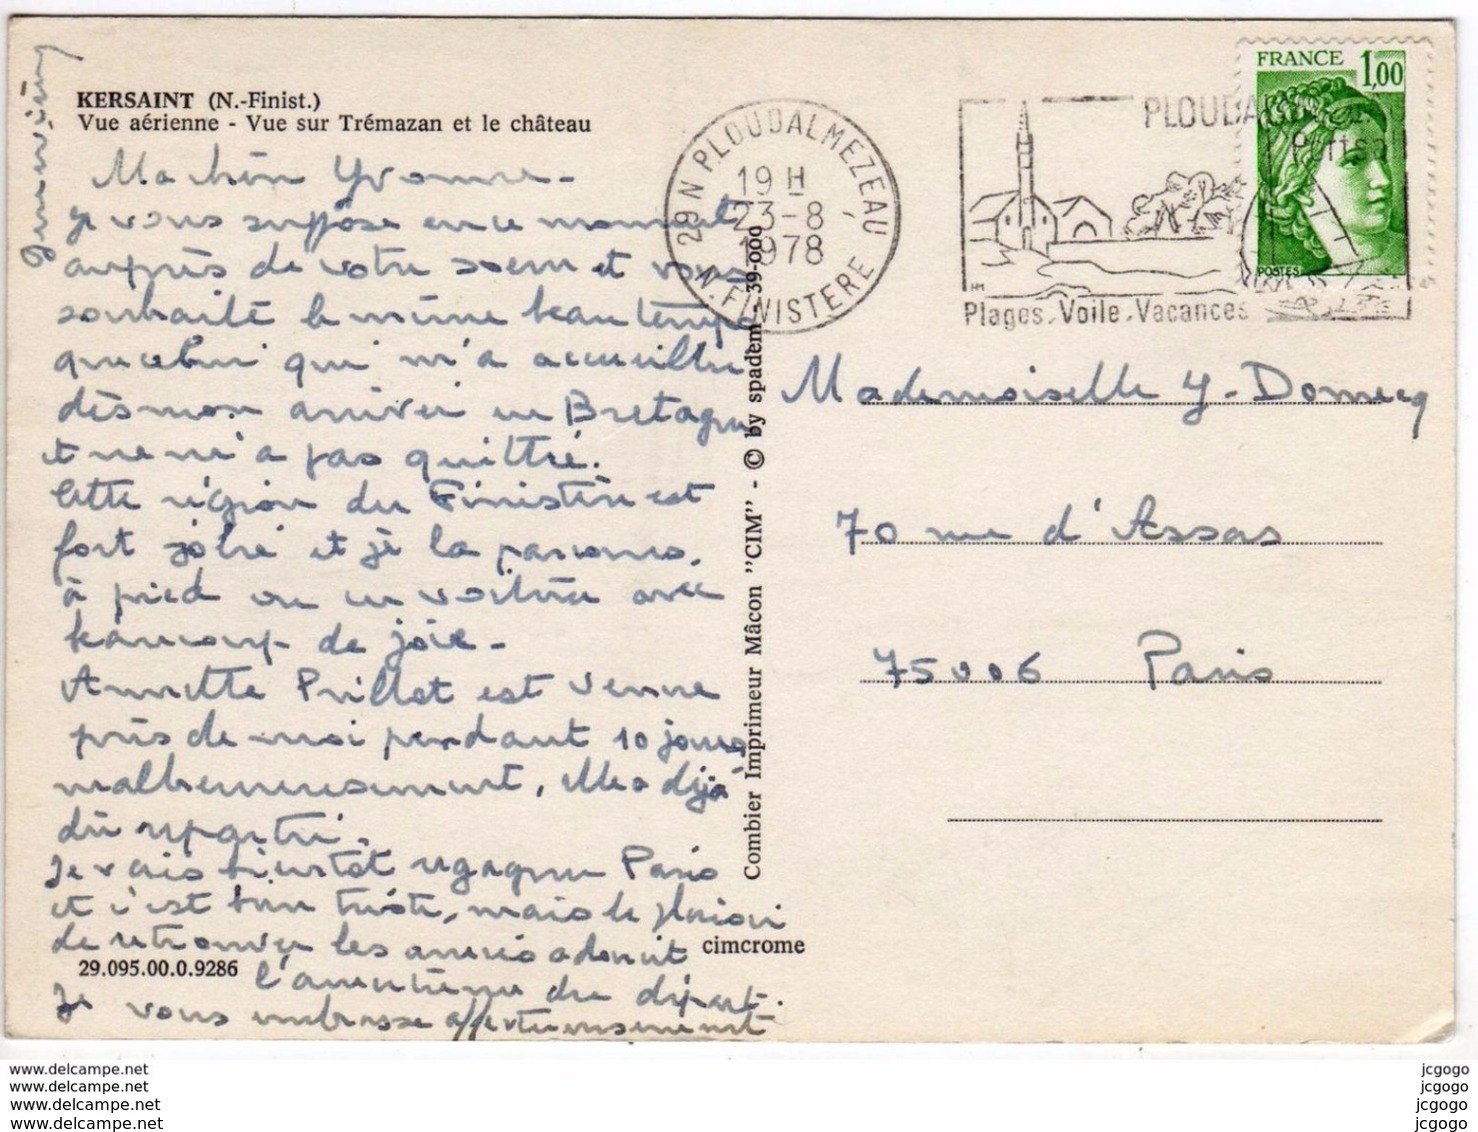 KERSAINT (N.-Finist.)
Vue aérienne - Vue sur Trémazan et le château
Ma chère Yvonne -
Je vous suppose en ce moment
auprès de votre soeur et vous
souhaite le même beau temps
que celui qui m'a accueillie
dès mon arrivée en Bretagne
et ne m'a pas quitté.
Cette région du Finistère est
fort jolie et je la parcours,
à pied ou en voiture avec
beaucoup de joie -
Annette Prillot est venue
près de moi pendant 10 jours
malheureusement, elle a déjà
dû repartir.
Je vais bientôt regagner Paris
et c'est bien triste, mais le plaisir
de retrouver les amies adoucit
l'amertume du départ.
Je vous embrasse affectueusement
29.095.00.0.9286
cimcrome
Combier Imprimeur Mâcon "CIM" - © by spadem - 39-000
29 N PLOUDALMÉZEAU
19 H
23-8
1978
N. FINISTERE
PLOUDAL
Portsal
Plages. Voile. Vacances
FRANCE 1,00
POSTES
Mademoiselle Y. Domecq
70 rue d'Assas
75006 Paris
www.delcampe.net
www.delcampe.net
www.delcampe.net
www.delcampe.net
jcgogo
jcgogo
jcgogo
jcgogo